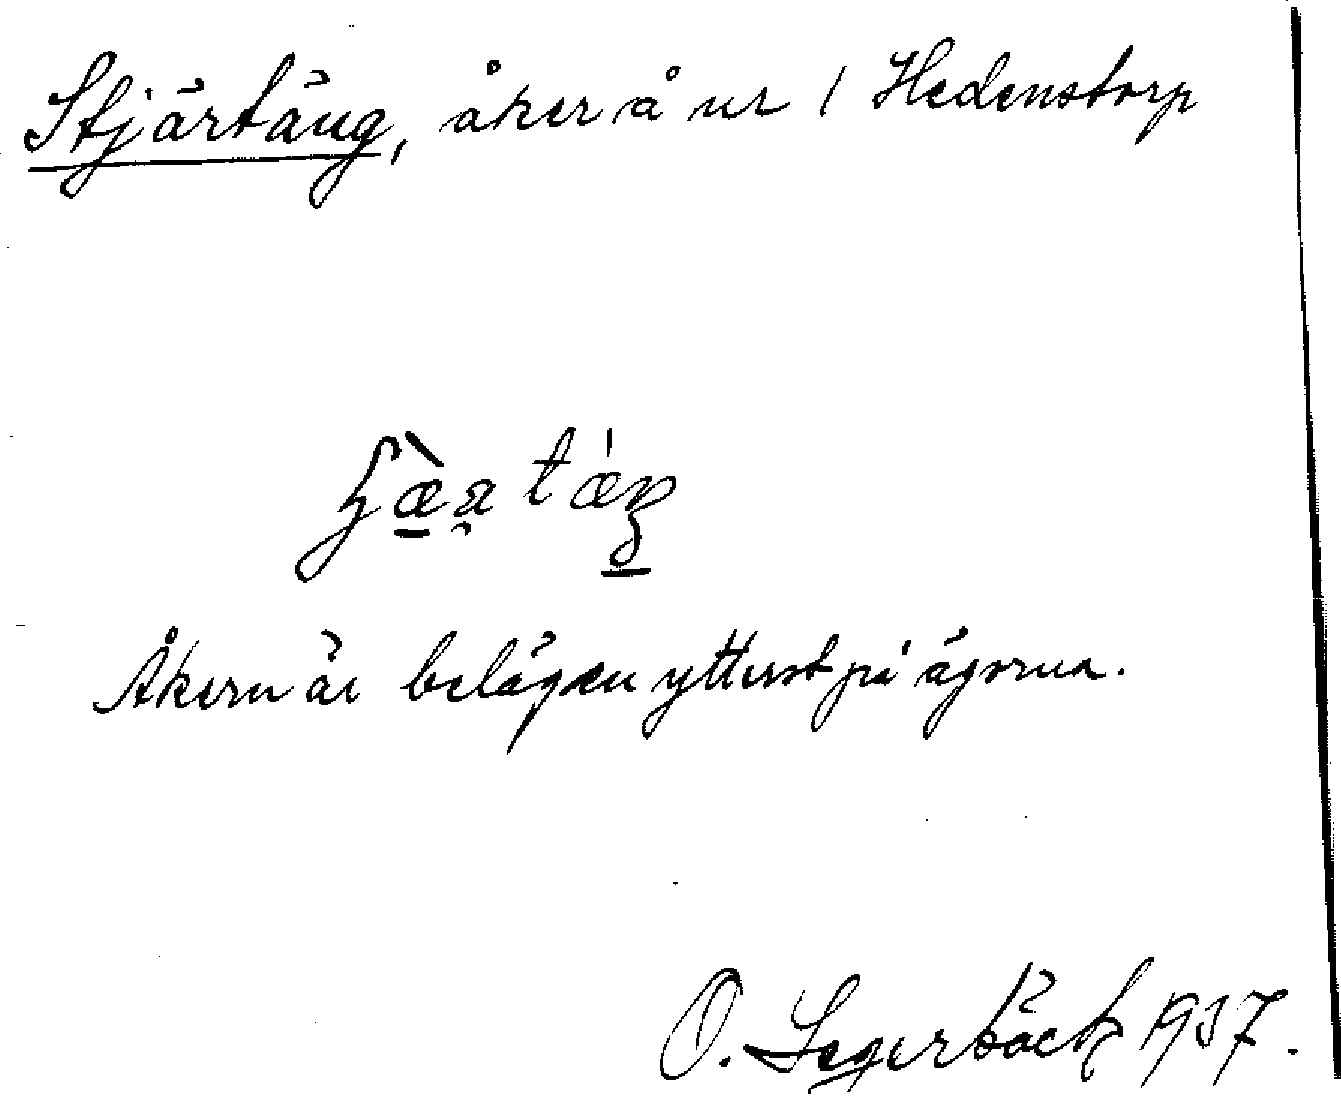 Stjärtäng, åker å nr 1 Hedenstorp
Åkern är belägen ytterst på ägorna.
O. Segerbäck 1937.